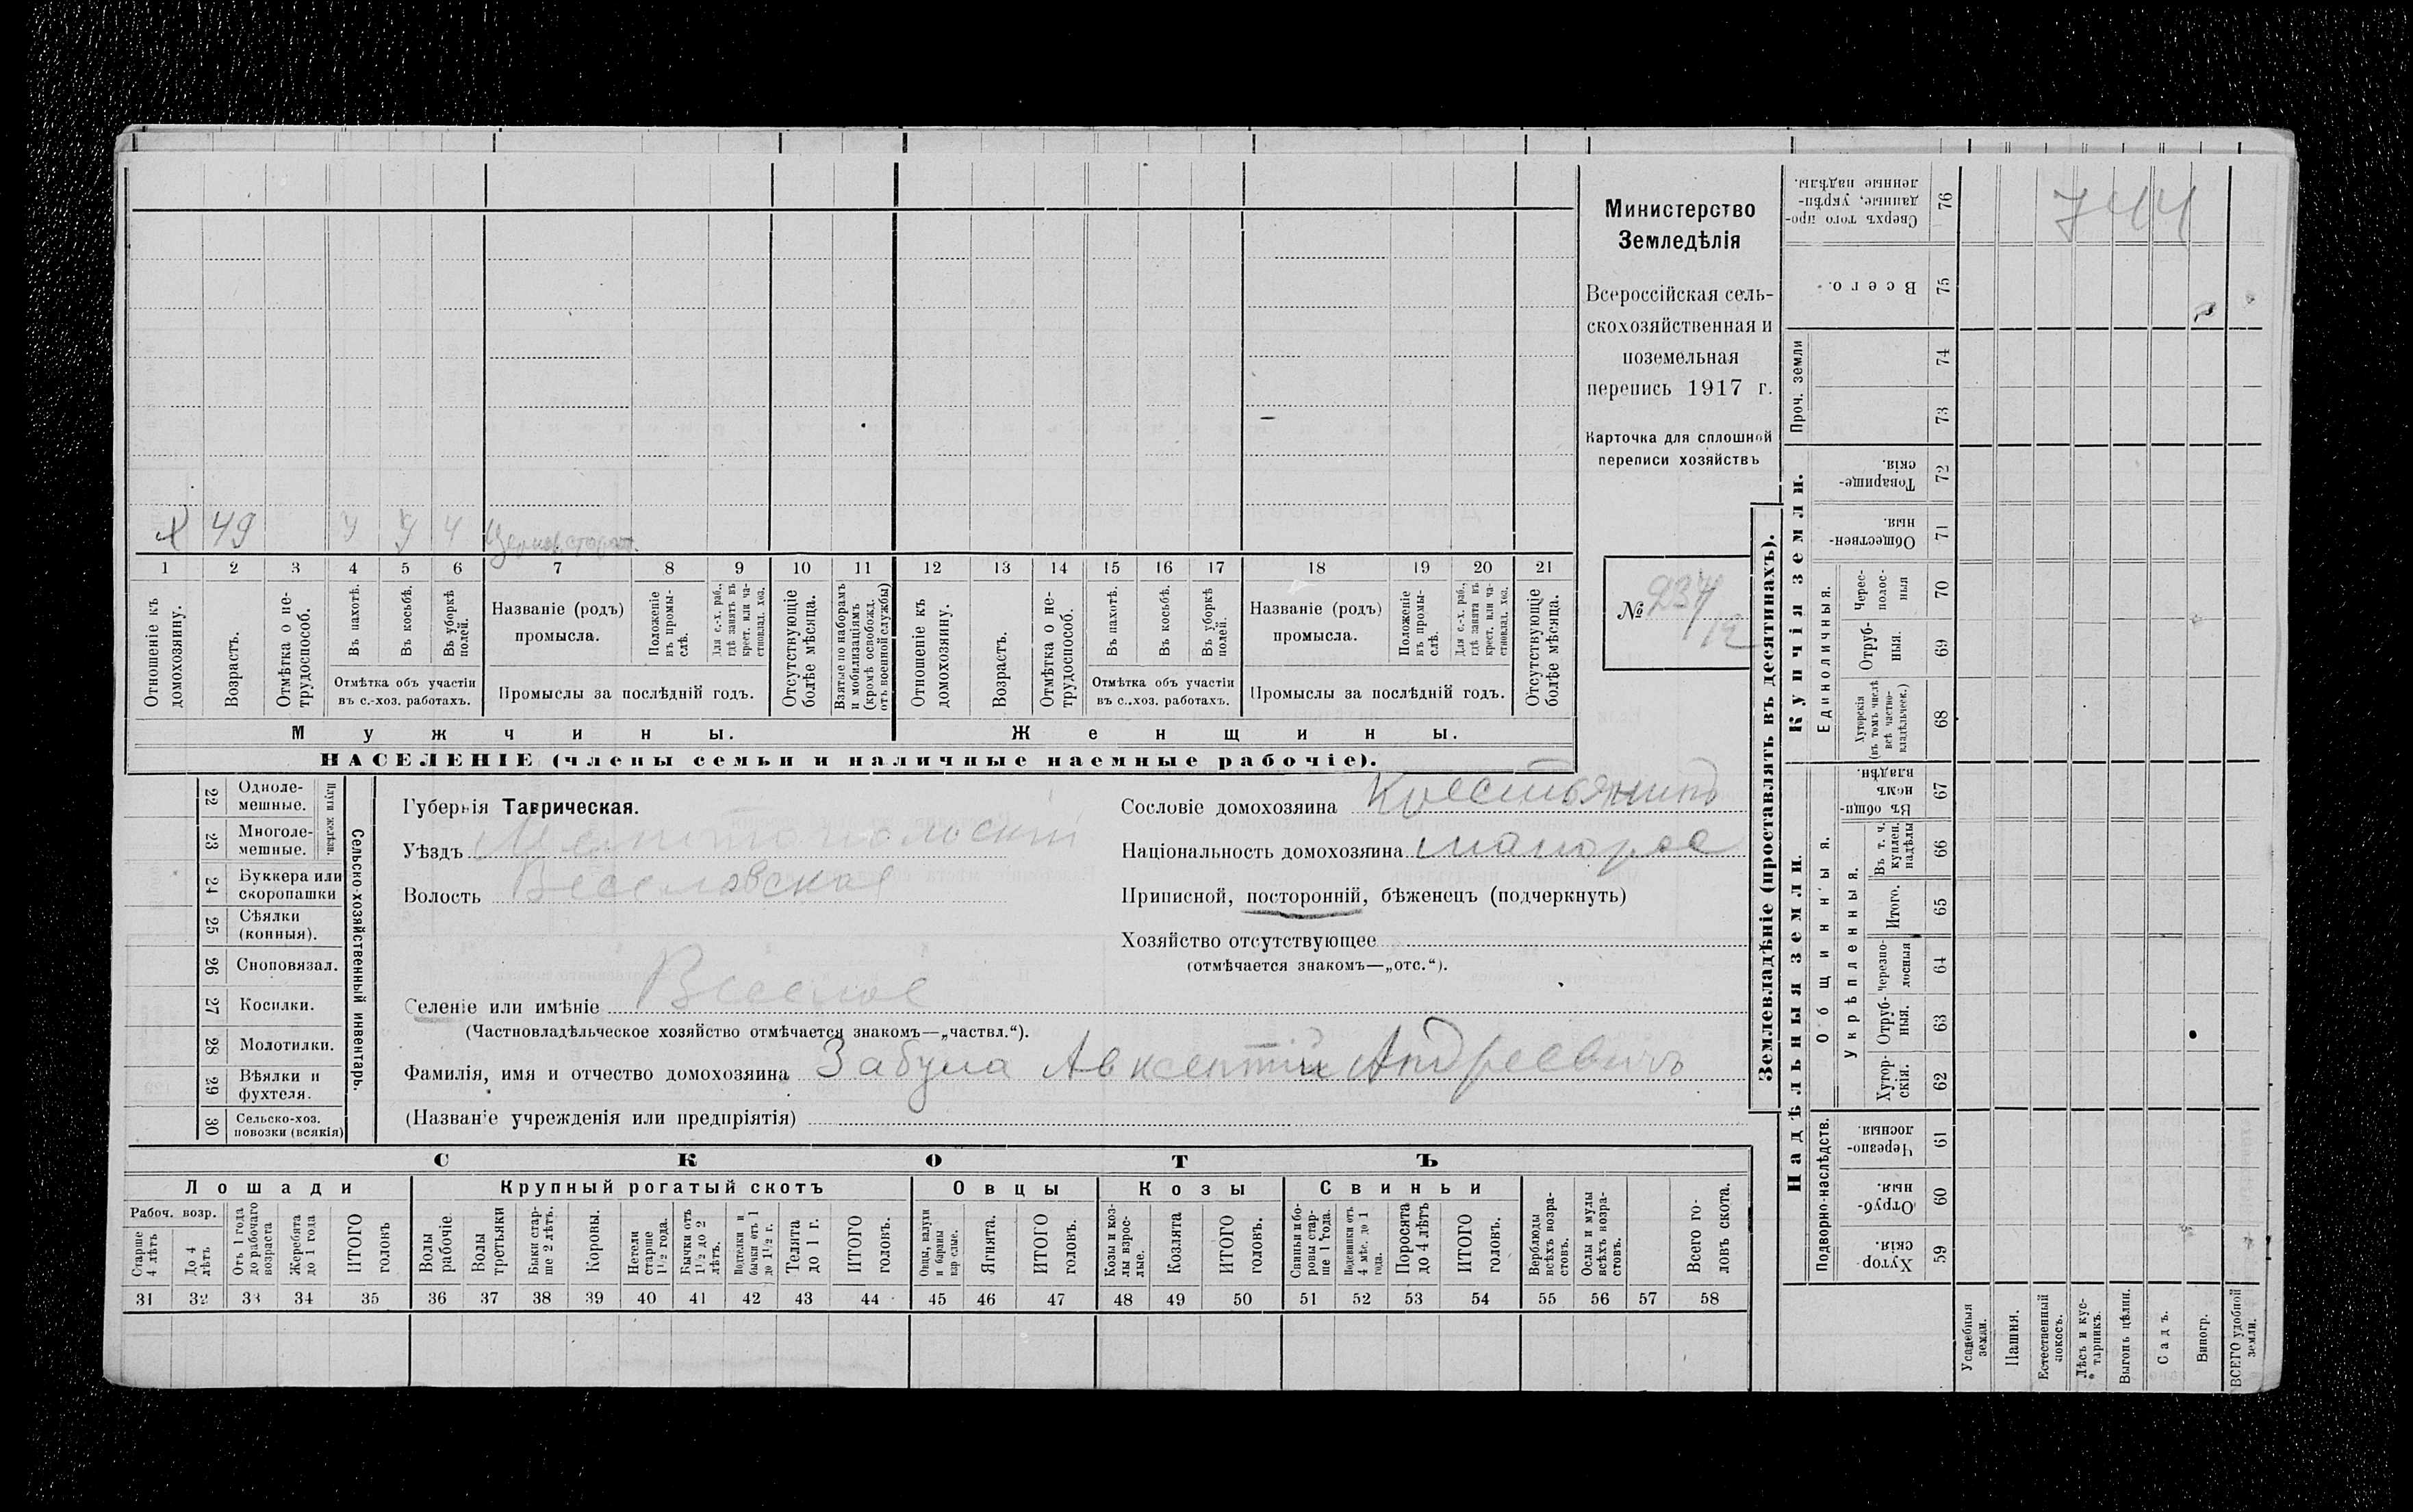 Министерство
Земледѣлія
Всероссійская сель-
скохозяйственная и
поземельная
перепись 1917 г.
Карточка для сплошной
переписи хозяйствъ
№ 237/12
744
х 49 ч ч ч Церков. сторож.
1 2 3 4 5 6 7 8 9 10 11 12 13 14 15 16 17 18 19 20 21
Отношеніе къ домохозяину.
Возрастъ.
Отмѣтка о не-трудоспособ.
Въ пахотѣ.
Въ косьбѣ.
Въ уборкѣ полей.
Отмѣтка объ участіи
въ с.-хоз. работахъ.
Названіе (родъ)
промысла.
Положеніе въ промы-слѣ.
Для с.-х. раб., гдѣ занятъ въ крест. или ча-стновлад. хоз.
Промыслы за послѣдній годъ.
Отсутствующіе болѣе мѣсяца.
Взятые по наборамъ и мобилизаціямъ (кромѣ освобожд. отъ военной службы)
Отношеніе къ домохозяину.
Возрастъ.
Отмѣтка о не-трудоспособ.
Въ пахотѣ.
Въ косьбѣ.
Въ уборкѣ полей.
Отмѣтка объ участіи
въ с.-хоз. работахъ.
Названіе (родъ)
промысла.
Положеніе въ промы-слѣ.
Для с.-х. раб., гдѣ занята въ крест. или ча-стновлад. хоз.
Промыслы за послѣдній годъ.
Отсутствующіе болѣе мѣсяца.
Мужчины.
Женщины.
НАСЕЛЕНІЕ (члены семьи и наличные наемные рабочіе).
22 Одноле-мешные.
23 Многоле-мешные.
Плуги желѣзн.
24 Буккера или скоропашки
25 Сѣялки (конныя).
26 Сноповязал.
27 Косилки.
28 Молотилки.
29 Вѣялки и фухтеля.
30 Сельско-хоз. повозки (всякія)
Сельско-хозяйственный инвентарь.
Губернія Таврическая.
Уѣздъ Мелитопольскій
Волость Веселовская
Селеніе или имѣніе Веселое
(Частновладѣльческое хозяйство отмѣчается знакомъ—„частвл.“).
Фамилія, имя и отчество домохозяина Забула Авксентій Андреевичъ
(Названіе учрежденія или предпріятія)
Сословіе домохозяина Крестьянинъ
Національность домохозяина малорос
Приписной, посторонній, бѣженецъ (подчеркнуть)
Хозяйство отсутствующее
(отмѣчается знакомъ—„отс.“).
СКОТЪ
Лошади
Крупный рогатый скотъ
Овцы
Козы
Свиньи
Рабоч. возр.
Старше 4 лѣтъ
До 4 лѣтъ
Отъ 1 года до рабочаго возраста
Жеребята до 1 года
ИТОГО головъ
Волы рабочіе
Волы третьяки
Быки стар-ше 2 лѣтъ.
Коровы.
Нетели старше 1½ года.
Бычки отъ 1½ до 2 лѣтъ.
Подтелки и бычки отъ 1 до 1½ г.
Телята до 1 г.
ИТОГО головъ.
Овцы, валухи и бараны взрослые.
Ягнята.
ИТОГО головъ.
Козы и коз-лы взрос-лые.
Козлята
ИТОГО головъ.
Свиньи и бо-ровы стар-ше 1 года.
Подсвинки отъ 4 мѣс. до 1 года.
Поросята до 4 лѣтъ
ИТОГО головъ.
Верблюды всѣхъ возра-стовъ.
Ослы и мулы всѣхъ возра-стовъ.
Всего го-ловъ скота.
31 32 33 34 35 36 37 38 39 40 41 42 43 44 45 46 47 48 49 50 51 52 53 54 55 56 57 58
Землевладѣніе (проставлять въ десятинахъ).
Купчія земли.
Надѣльныя земли.
Сверхъ того про-данные, укрѣп-ленные надѣлы. 76
Всего. 75
Проч. земли
74
73
Товарище-скія. 72
Обществен-ныя. 71
Единоличныя.
Черес-полос-ныя 70
Отруб-ныя. 69
Хуторскія (въ томъ числѣ всѣ частно-владѣльческ.) 68
Общинныя.
Въ общи-номъ владѣн. 67
Укрѣпленныя.
Въ т. ч. куплен. надѣлы 66
Итого. 65
Черезпо-лосныя 64
Отруб-ныя. 63
Хутор-скія. 62
Подворно-наслѣдств.
Черезпо-лосныя. 61
Отруб-ныя. 60
Хутор-скія. 59
Усадебныя земли.
Пашня.
Естественный покосъ.
Лѣсъ и кус-тарникъ.
Выгонъ цѣлин.
Садъ.
Виногр.
ВСЕГО удобной земли.